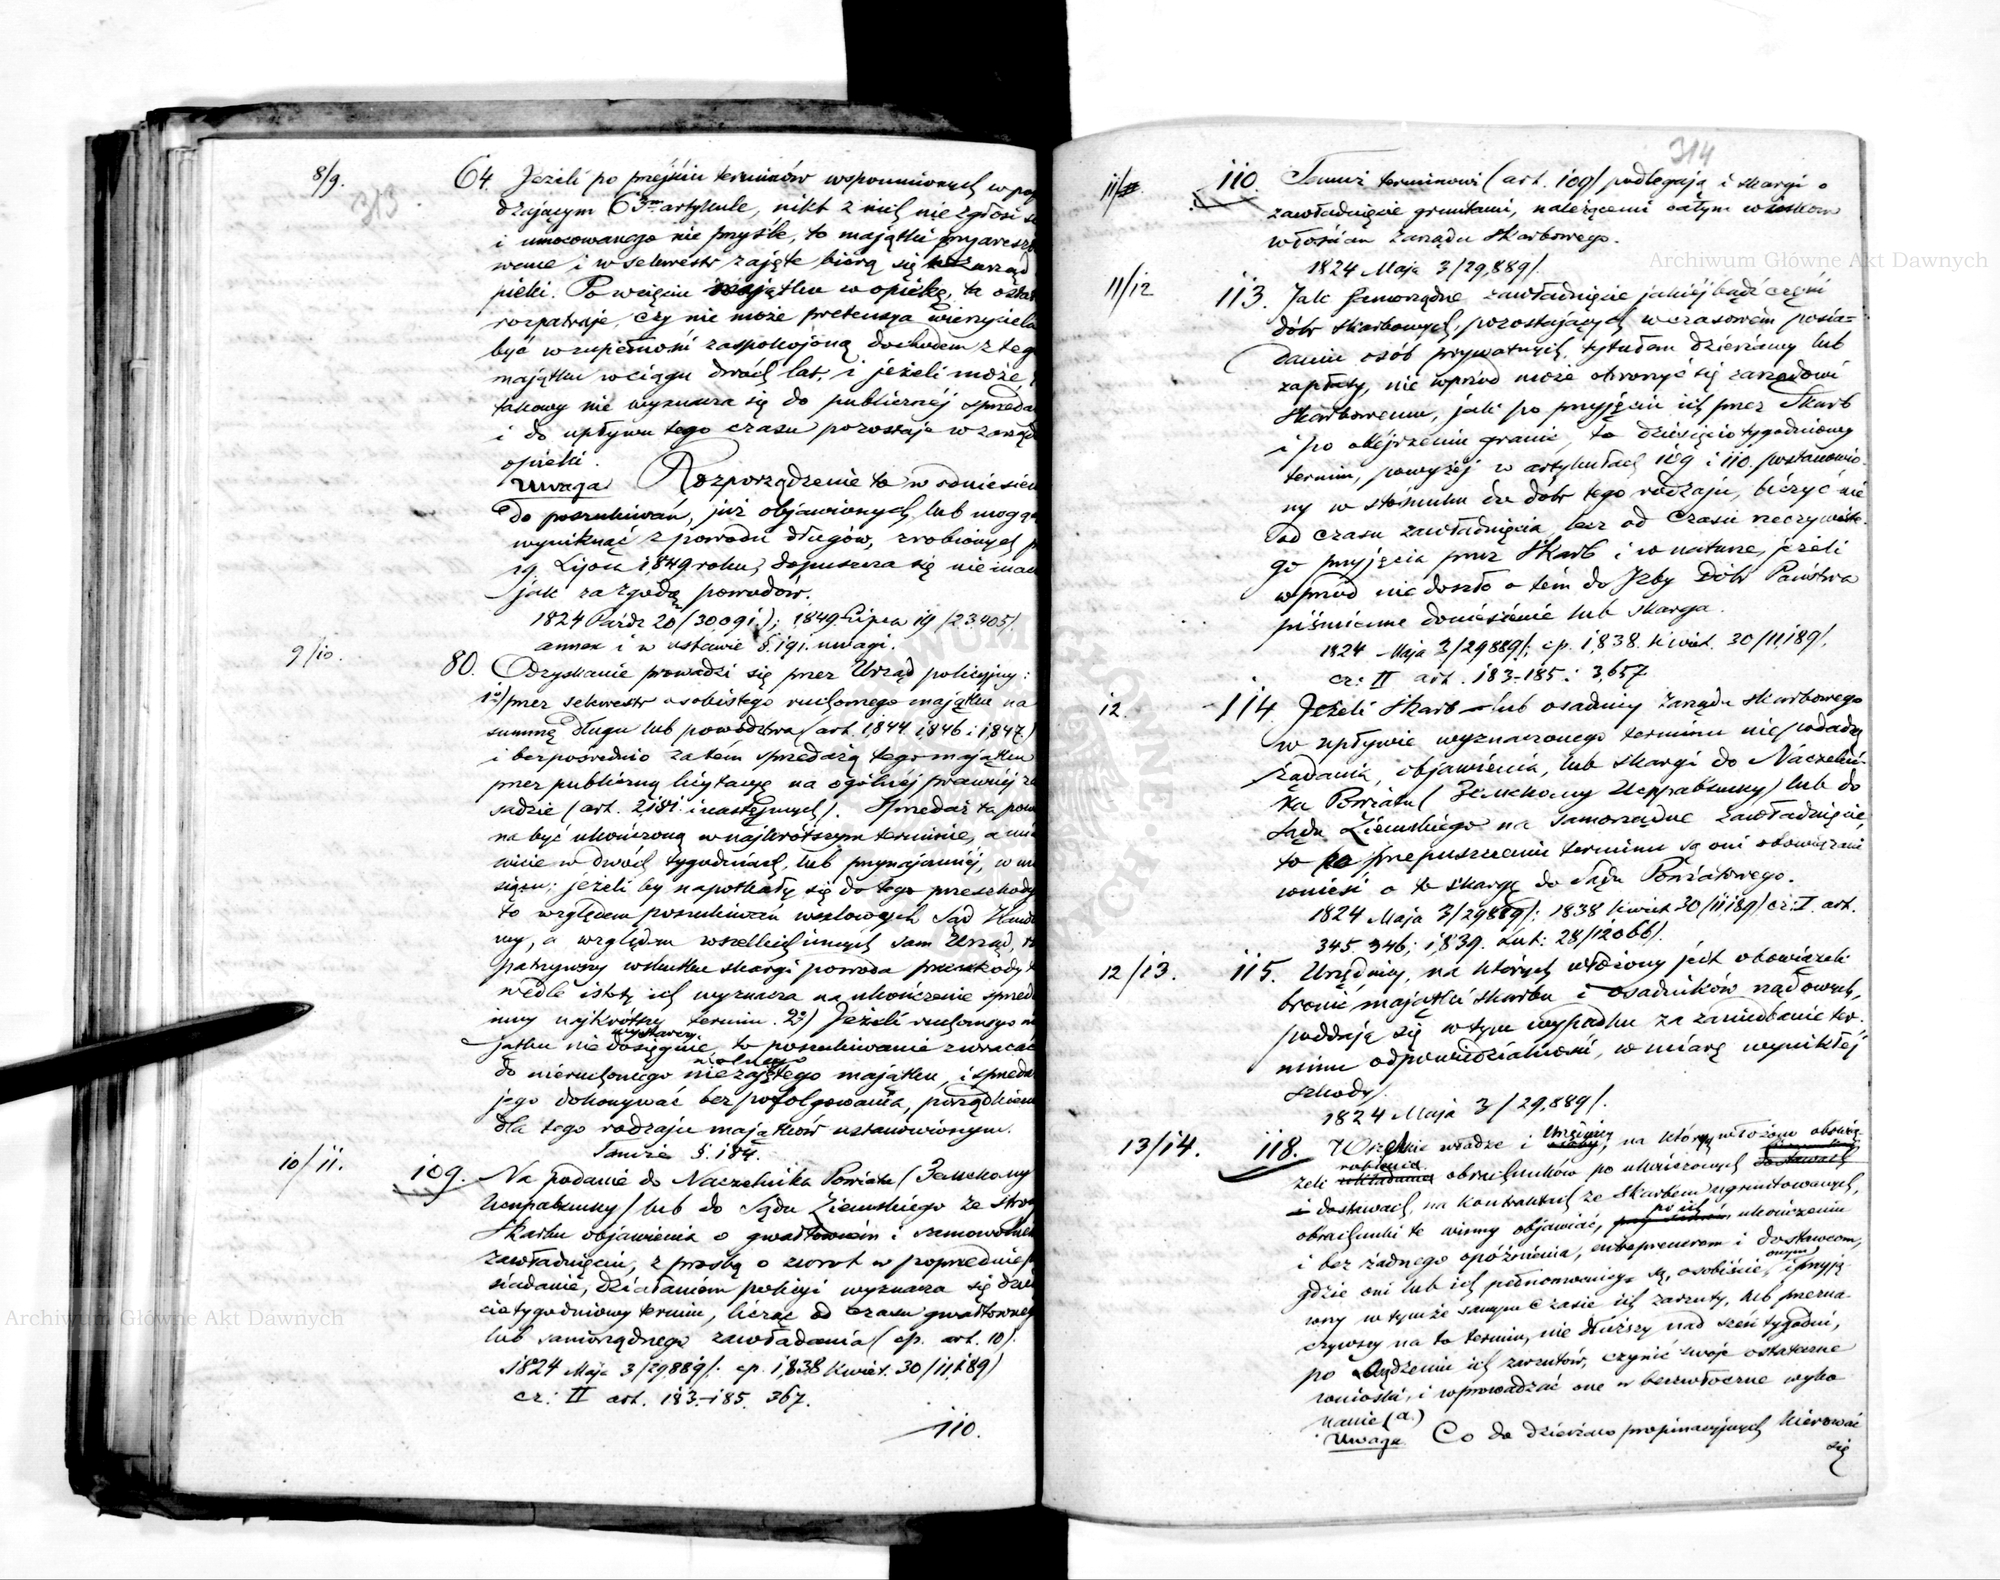 8/9.
313.
64. Jeżeli po przejściu terminów wspomnionych w pop
dzającym 63m artykule, nikt z nich nie zgłosi s
i umocowanego nie przyśle, to majątki przyareszt
wane i w sekwestr zajęte biorą się w zarząd
pieki. Po wzięciu majątku w opiekę, ta osta
rozpatruje, czy nie może pretensya wierzyciela
być w zupełności zaspokojoną dochodem z teg
majątku w ciągu dwóch lat, i jeżeli może,
takowy nie wyznacza się do publicznéj sprzeda
i do upływu tego czasu pozostaje w zarząd
opieki.
Uwaga Rozporządzenie to w odniesien
do poszukiwań, już objawionych lub mogąc
wyniknąć z powodu długów, zrobionych p
19. Lipca 1849 roku, dopuszcza się nie inac
jak za zgodą powodów.
1824 Paźdz 20 (30091.); 1849 Lipca 19 (23.405)
annex i w ustawie § 191. uwagi.
9/10.
80. Odzyskanie prowadzi się przez Urząd policyjny:
1o) przez sekwestr osobistego ruchomego majątku na
summę długu lub powództwa (art. 1844. 1846 i 1847)
i bezpośrednio zatém sprzedażą tego majątku
przez publiczną licytacyę na ogólnéj prawnéj za
sadzie (art. 2181 i następnych). Sprzedaż ta pow
na być ukończoną w najkrótszym terminie, a mia
wicie w dwóch tygodniach, lub przynajmniéj, w mi
siącu; jeżeli by napotkały się do tego przeszkody
to względem poszukiwań wexlowych Sąd Hand
wy, a względem wszelkich innych sam Urząd, r
patrzywszy wskutku skargi powoda przeszkody t
wedle istoty ich wyznacza na ukończenie sprzed
inny najkrótszy termin. 2o) Jeżeli ruchomego m
wystarczy
jątku nie dosięgnie, to poszukiwanie zwracać
wolnego
do nieruchomego niezajętego majątku, i sprzeda
jego dokonywać bez pofolgowania, porządkiem
dla tego rodzaju majątków ustanowionym.
Tamże §. 184.
10/11.
109. Na podanie do Naczelnika Powiatu (Земскому
Исправнику) lub do Sądu Ziemskiego ze stron
Skarbu objawienia o gwałtowném i samowolném
zawładnięciu, z prośbą o zwrot w poprzednie p
siadanie, działaniem policyi wyznacza się dzie
ciotygodniowy termin, licząc od czasu gwałtowneg
lub samorządnego zawładania (cp. art. 10).
1824 Maja 3 (29889). cp. 1838 Kwiet. 30 (11189)
cz: II art. 183–185. 367.
110.
314
11/
110. Temuż terminowi (art. 109) podlegają i skargi o
zawładnięcie gruntami, należącemi całym wioskom
włościan zarządu Skarbowego.
1824 Maja 3 (29,889).
11/12
113. Jak samorządne zawładnięcie jakiéj bądź części
dóbr Skarbowych, pozostających w czasowém posia=
daniu osób prywatnych, tytułem dzierżawy lub
zapłaty, nie wprzód może otworzyć się zarządowi
Skarbowemu, jak po przyjęciu ich przez Skarb
i po obejrzeniu granic, to dziesięciotygodniowy
termin, powyżéj w artykułach 109 i 110. postanowio-
ny w stosunku do dóbr tego rodzaju, liczyć nie
od czasu zawładnięcia, lecz od czasu rzeczywiste-
go przyjęcia przez Skarb i w naturze, jeżeli
wprzód nie doszło o tém do Izby Dóbr Państwa
piśmienne doniesienie lub skarga.
1824 Maja 3 (29889); cp. 1838. Kwiet. 30 (11,189),
cz: II art. 183–185. i 3,657
12.
114. Jeżeli Skarb lub osadnicy zarządu skarbowego
w upływie wyznaczonego terminu nie podadzą
żądania, objawienia, lub skargi do Naczelni-
ka Powiatu (Земскому Исправнику) lub do
Sądu Ziemskiego na samorządne zawładnięcie,
to po przepuszczeniu terminu są oni obowiązani
wnieść o to skargę do Sądu Powiatowego.
1824 Maja 3 (29889); 1838 Kwiet 30 (11189) cz: I. art.
345. 346; 1839. Lut: 28 (12066).
12/13.
115. Urzędnicy, na których włożony jest obowiązek
bronić majątku skarbu i osadników rządowych,
poddają się w tym wypadku za zaniedbanie ter-
minu odpowiedzialności, w miarę wynikłéj
szkody.
1824 Maja 3 (29,889).
13/14.
118. Wszelkie władze i Urzędnicy, na których włożono obowią-
robienia
zek obrachunków po ukończonych
i dostawach, na kontraktach ze Skarbem ugruntowanych,
po ich
obrachunki te winny objawiać, ukończeniu
i bez żadnego opóźnienia, entreprenerom i dostawcom,
onym
gdzie oni lub ich pełnomocnicy są, osobiście, i przyją
wszy w tymże samym czasie ich zarzuty, lub przezna
czywszy na to termin, nie dłuższy nad sześć tygodni,
po osądzeniu ich zarzutów, czynić swoje ostateczne
wnioski, i wprowadzać one w bezwłoczne wyko
nanie (a.)
Uwaga Co do dzierżaw propinacyjnych kierować
się
Archiwum Główne Akt Dawnych
Archiwum Główne Akt Dawnych